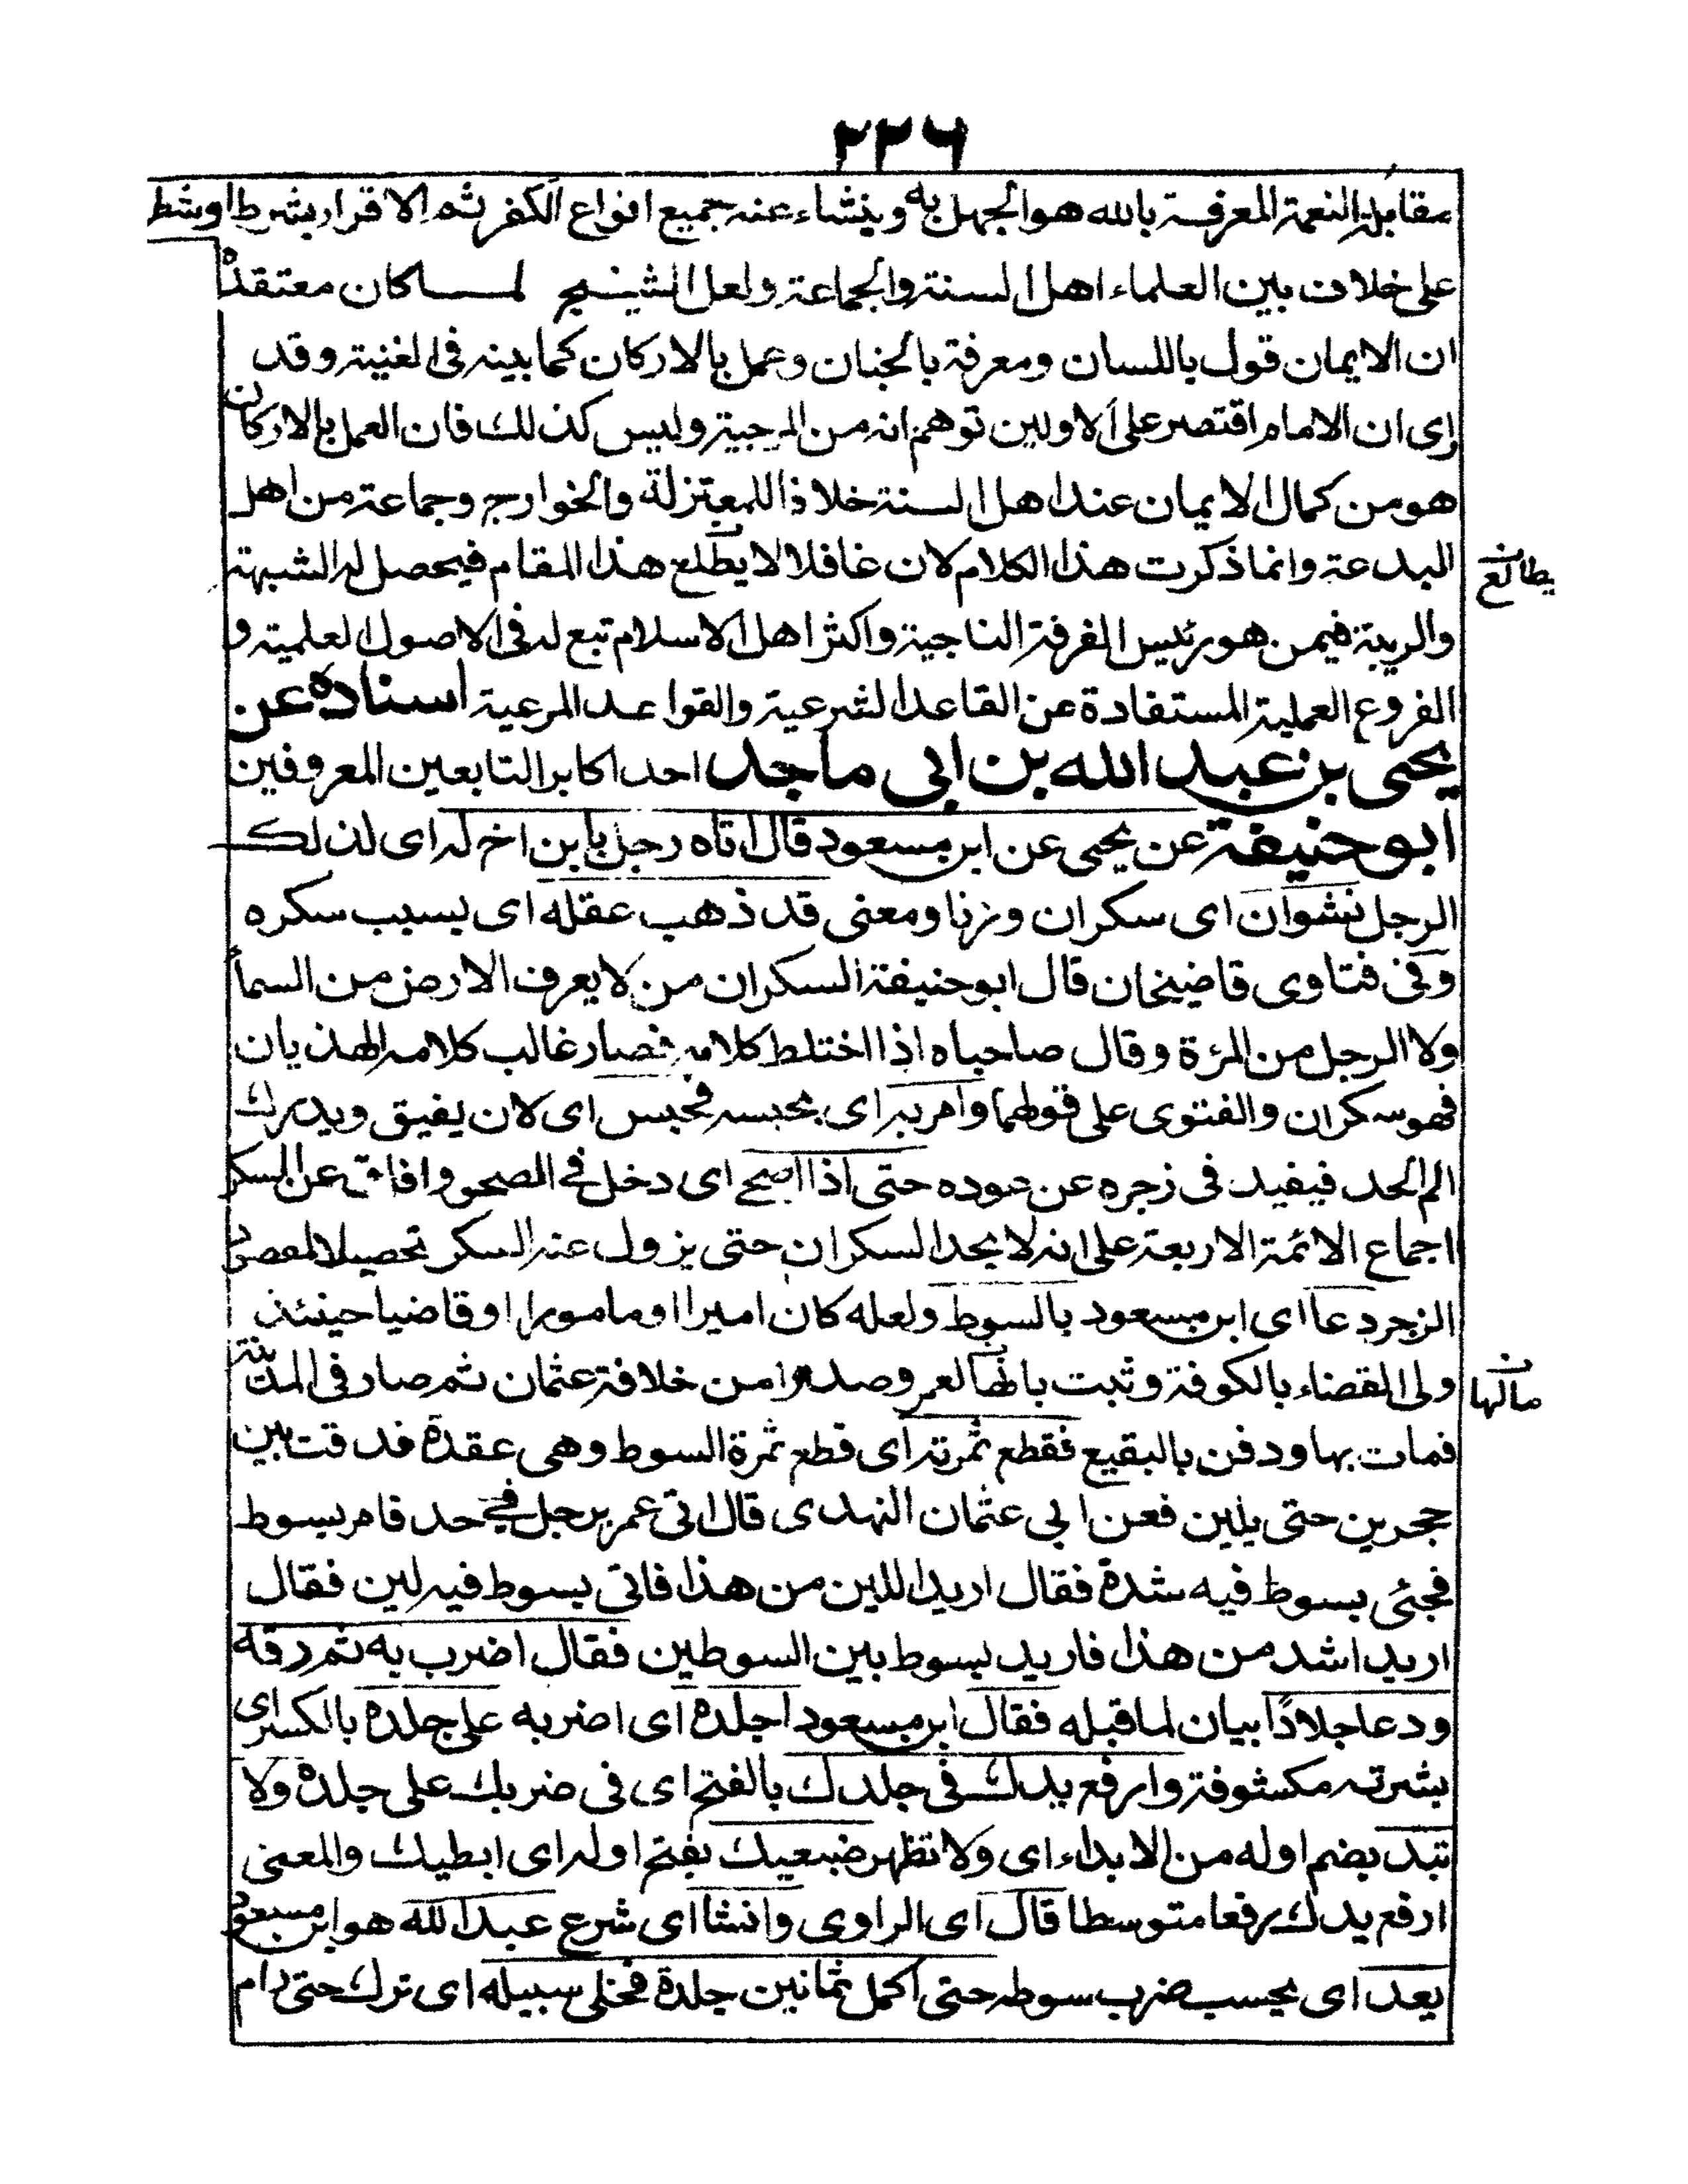 ٢٢٦
مقابلة النعمة المعرفة بالله هو الجهل به وينشاء عنه جميع انواع الكفر ثم الاقرار بشرط او شط
على خلاف بين العلماء اهل السنة والجماعة ولعل الشيخ لما كان معتقده
ان الايمان قول باللسان ومعرفة بالجنان وعمل بالاركان كما بينه فى الغنية وقد
راى ان الامام اقتصر على الاولين توهم انه من المرجية وليس كذلك فان العمل بالاركان
هو من كمال الايمان عند اهل السنة خلافا للمعتزلة والخوارج وجماعة من اهل
البدعة وانما ذكرت هذا الكلام لان غافلا لا يطلع هذا المقام فيحصل له الشبهة
يطالع
والريبة فيمن هو رئيس الفرقة الناجية واكثر اهل الاسلام تبع له فى الاصول العلمية و
الفروع العملية المستفادة عن القاعد الشرعية والقواعد المرعية اسناده عن
يحيى بن عبد الله بن ابى ماجد احد اكابر التابعين المعروفين
ابو حنيفة عن يحيى عن ابن مسعود قال اتاه رجل بابن اخ له اى لذلك
الرجل نشوان اى سكران وزنا ومعنى قد ذهب عقله اى بسبب سكره
وفى فتاوى قاضيخان قال ابو حنيفة السكران من لا يعرف الارض من السماء
ولا الرجل من المرءة وقال صاحباه اذا اختلط كلامه فصار غالب كلامه الهذيان
فهو سكران والفتوى على قولهما وامر به اى بحبسه فحبس اى لان يفيق ويدرك
الم الحد فيفيد فى زجره عن عوده حتى اذا اصح اى دخل فى الصحو وافاق عن السكر
اجماع الائمة الاربعة على انه لا يحد السكران حتى يزول عنه السكر تحصيلا لمقصود
الزجر دعا اى ابن مسعود بالسوط ولعله كان اميرا او مامورا او قاضيا حينئذ
ولى القضاء بالكوفة وثبت بالها لعمر وصدرا من خلافة عثمان ثم صار فى المدينة
مالها
فمات بها ودفن بالبقيع فقطع ثمرته اى قطع ثمرة السوط وهى عقدة فدقت بين
حجرين حتى يلين فعن ابى عثمان النهدى قال اتى عمر برجل فى حد فامر بسوط
فجئى بسوط فيه شدة فقال اريد اللين من هذا فاتى بسوط فيه لين فقال
اريد اشد من هذا فاريد بسوط بين السوطين فقال اضرب به ثم دقه
ودعا جلادًا بيان لما قبله فقال ابن مسعود اجلده اى اضربه على جلده بالكسر اى
بشرته مكشوفة وارفع يدك فى جلدك بالفتح اى فى ضربك على جلده ولا
تبد بضم اوله من الابداء اى ولا تظهر ضبعيك بفتح اوله اى ابطيك والمعنى
ارفع يدك رفعا متوسطا قال اى الراوى وانشا اى شرع عبد الله هو ابن مسعود
يعد اى يحسب ضرب سوطه حتى اكمل ثمانين جلدة فخلى سبيله اى ترك حتى رام